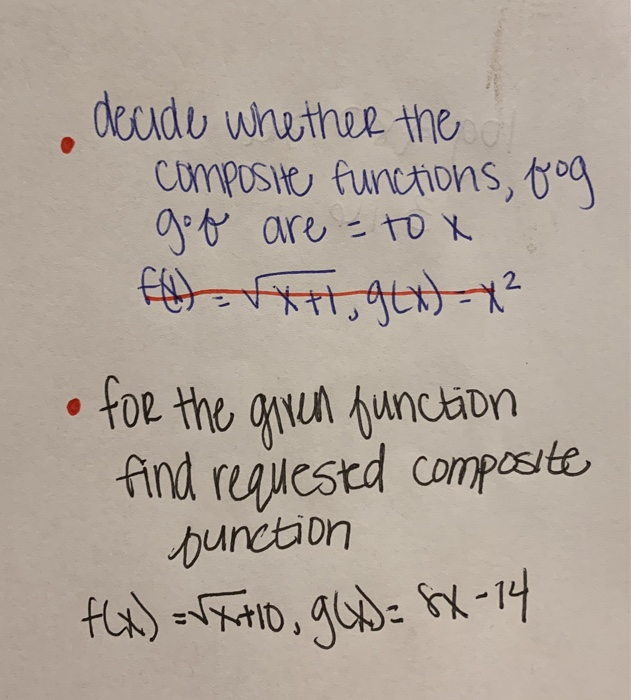 decide whether the
composite functions, fog
g∘f are = to x
f(x) = √x+1, g(x) = x²
for the given function
find requested composite
function
f(x) = √x+10, g(x) = 8x - 14